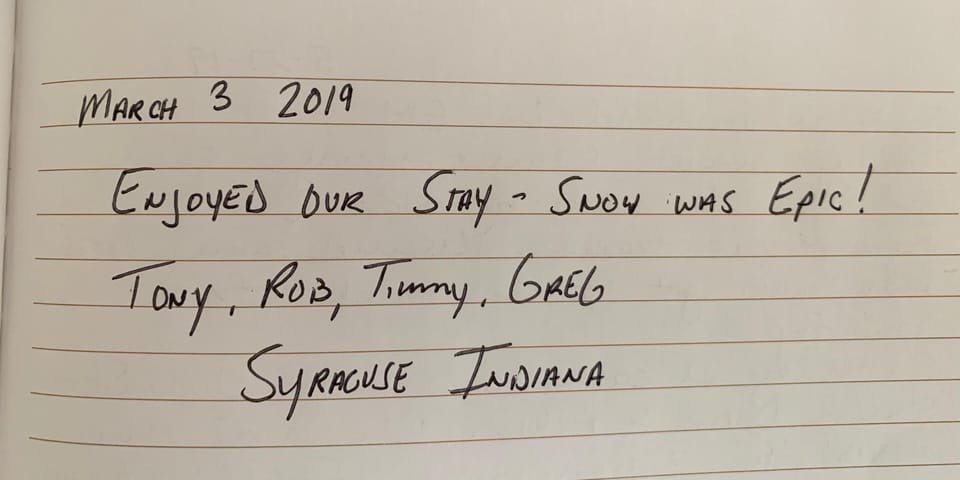 MARCH 3 2019
ENJOYED OUR STAY - SNOW WAS EPIC!
TONY, ROB, Timmy, GREG
SYRACUSE INDIANA